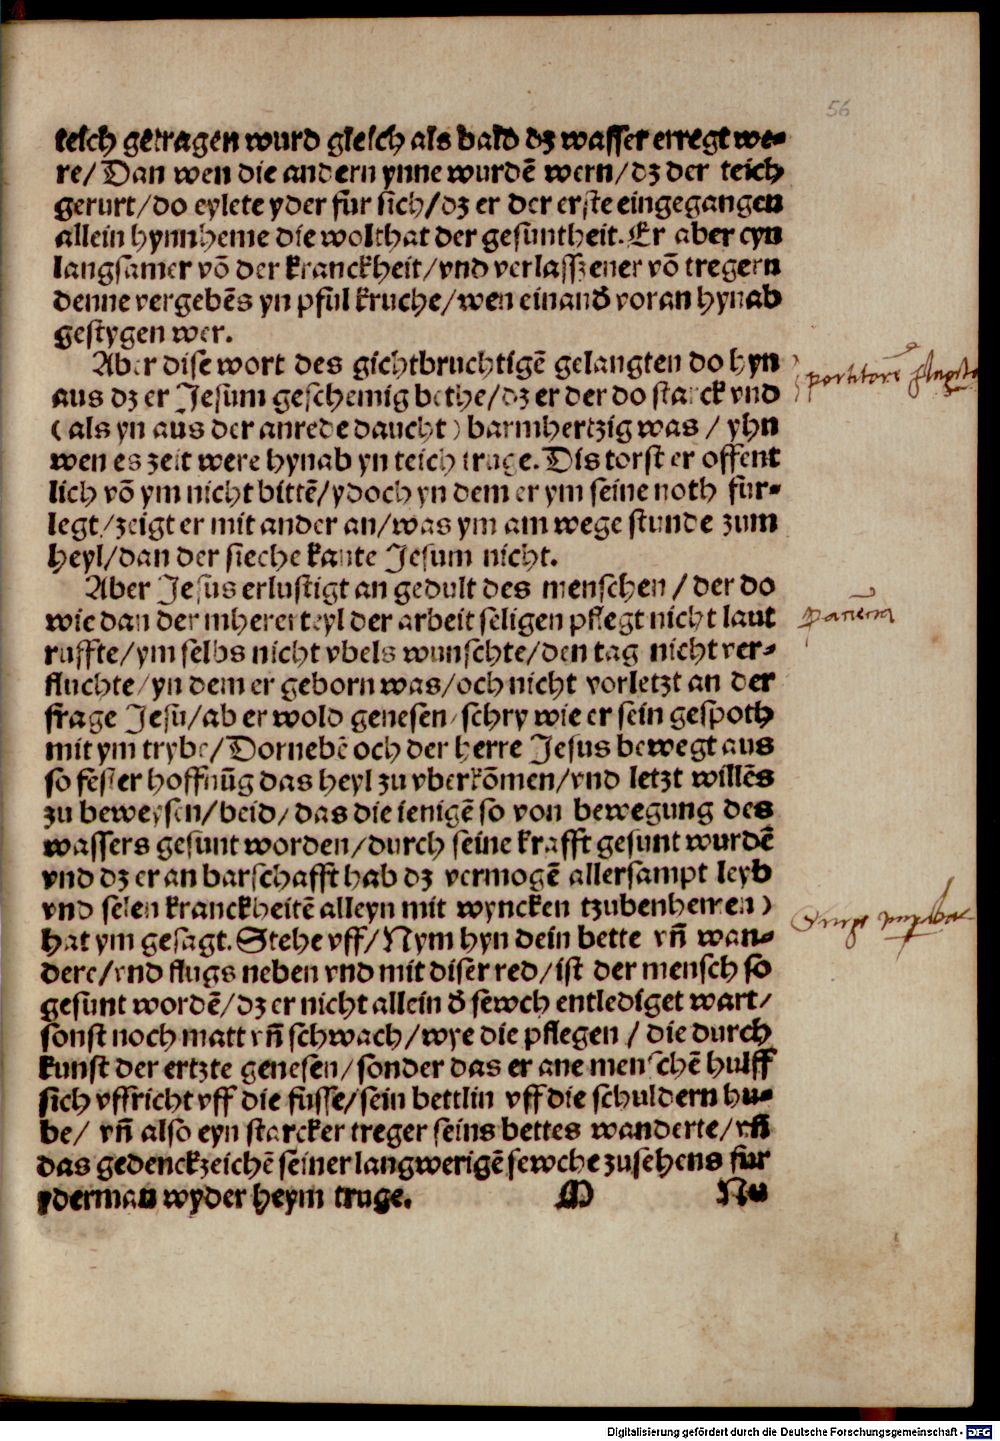 56
teich getragen wurd gleich als bald dz wasser erregt we-
re/ Dan wen die andern ynne wurdē wern/ dz der teich
gerurt/ do eylete yder fur sich/ dz er der erste eingegangen
allein hynnheme die wolthat der gesuntheit. Er aber eyn
langsamer vō der kranckheit/ vnd verlasszener vō tregern
denne vergebēs yn pful kruche/ wen einand voran hynab
gestygen wer.
Aber dise wort des gichtbruchtigē gelangten do hyn
aus dz er Jesum geschemig bethe/ dz er der do starck vnd
( als yn aus der anrede daucht ) barmhertzig was / yhn
wen es zeit were hynab yn teich truge. Dis torst er offent
lich vō ym nicht bittē/ ydoch yn dem er ym seine noth fur-
legt/ zeigt er mit ander an/ was ym am wege stunde zum
heyl/ dan der sieche kante Jesum nicht.
Aber Jesus erlustigt an gedult des menschen / der do
wie dan der mherer teyl der arbeit seligen pflegt nicht laut
ruffte/ ym selbs nicht vbels wunschte/ den tag nicht ver-
fluchte/ yn dem er geborn was/ och nicht vorletzt an der
frage Jesu/ ab er wold genesen/ schry wie er sein gespoth
mit ym trybe/ Dornebē och der herre Jesus bewegt aus
so fēster hoffnūg das heyl zu vberkōmen/ vnd letzt willēs
zu beweysen/ beid/ das die ienigē so von bewegung des
wassers gesunt worden/ durch seine krafft gesunt wurdē
vnd dz er an barschafft hab dz vermogē allersampt leyb
vnd selen kranckheitē alleyn mit wyncken tzubenhemen )
hat ym gesagt. Stehe vff/ Nym hyn dein bette vn̄ wan-
dere/ vnd flugs neben vnd mit diser red/ ist der mensch so
gesunt wordē/ dz er nicht allein d̄ sewch entlediget wart/
sonst noch matt vn̄ schwach/ wye die pflegen / die durch
kunst der ertzte genesen/ sonder das er ane menschē hulff
sich vffricht vff die fusse/ sein bettlin vff die schuldern hu-
be/ vn̄ also eyn starcker treger seins bettes wanderte/ vn̄
das gedenckzeichē seiner langwerigē sewche zusehens fur
yderman wyder heym truge.
M Nu
Digitalisierung gefördert durch die Deutsche Forschungsgemeinschaft - DFG